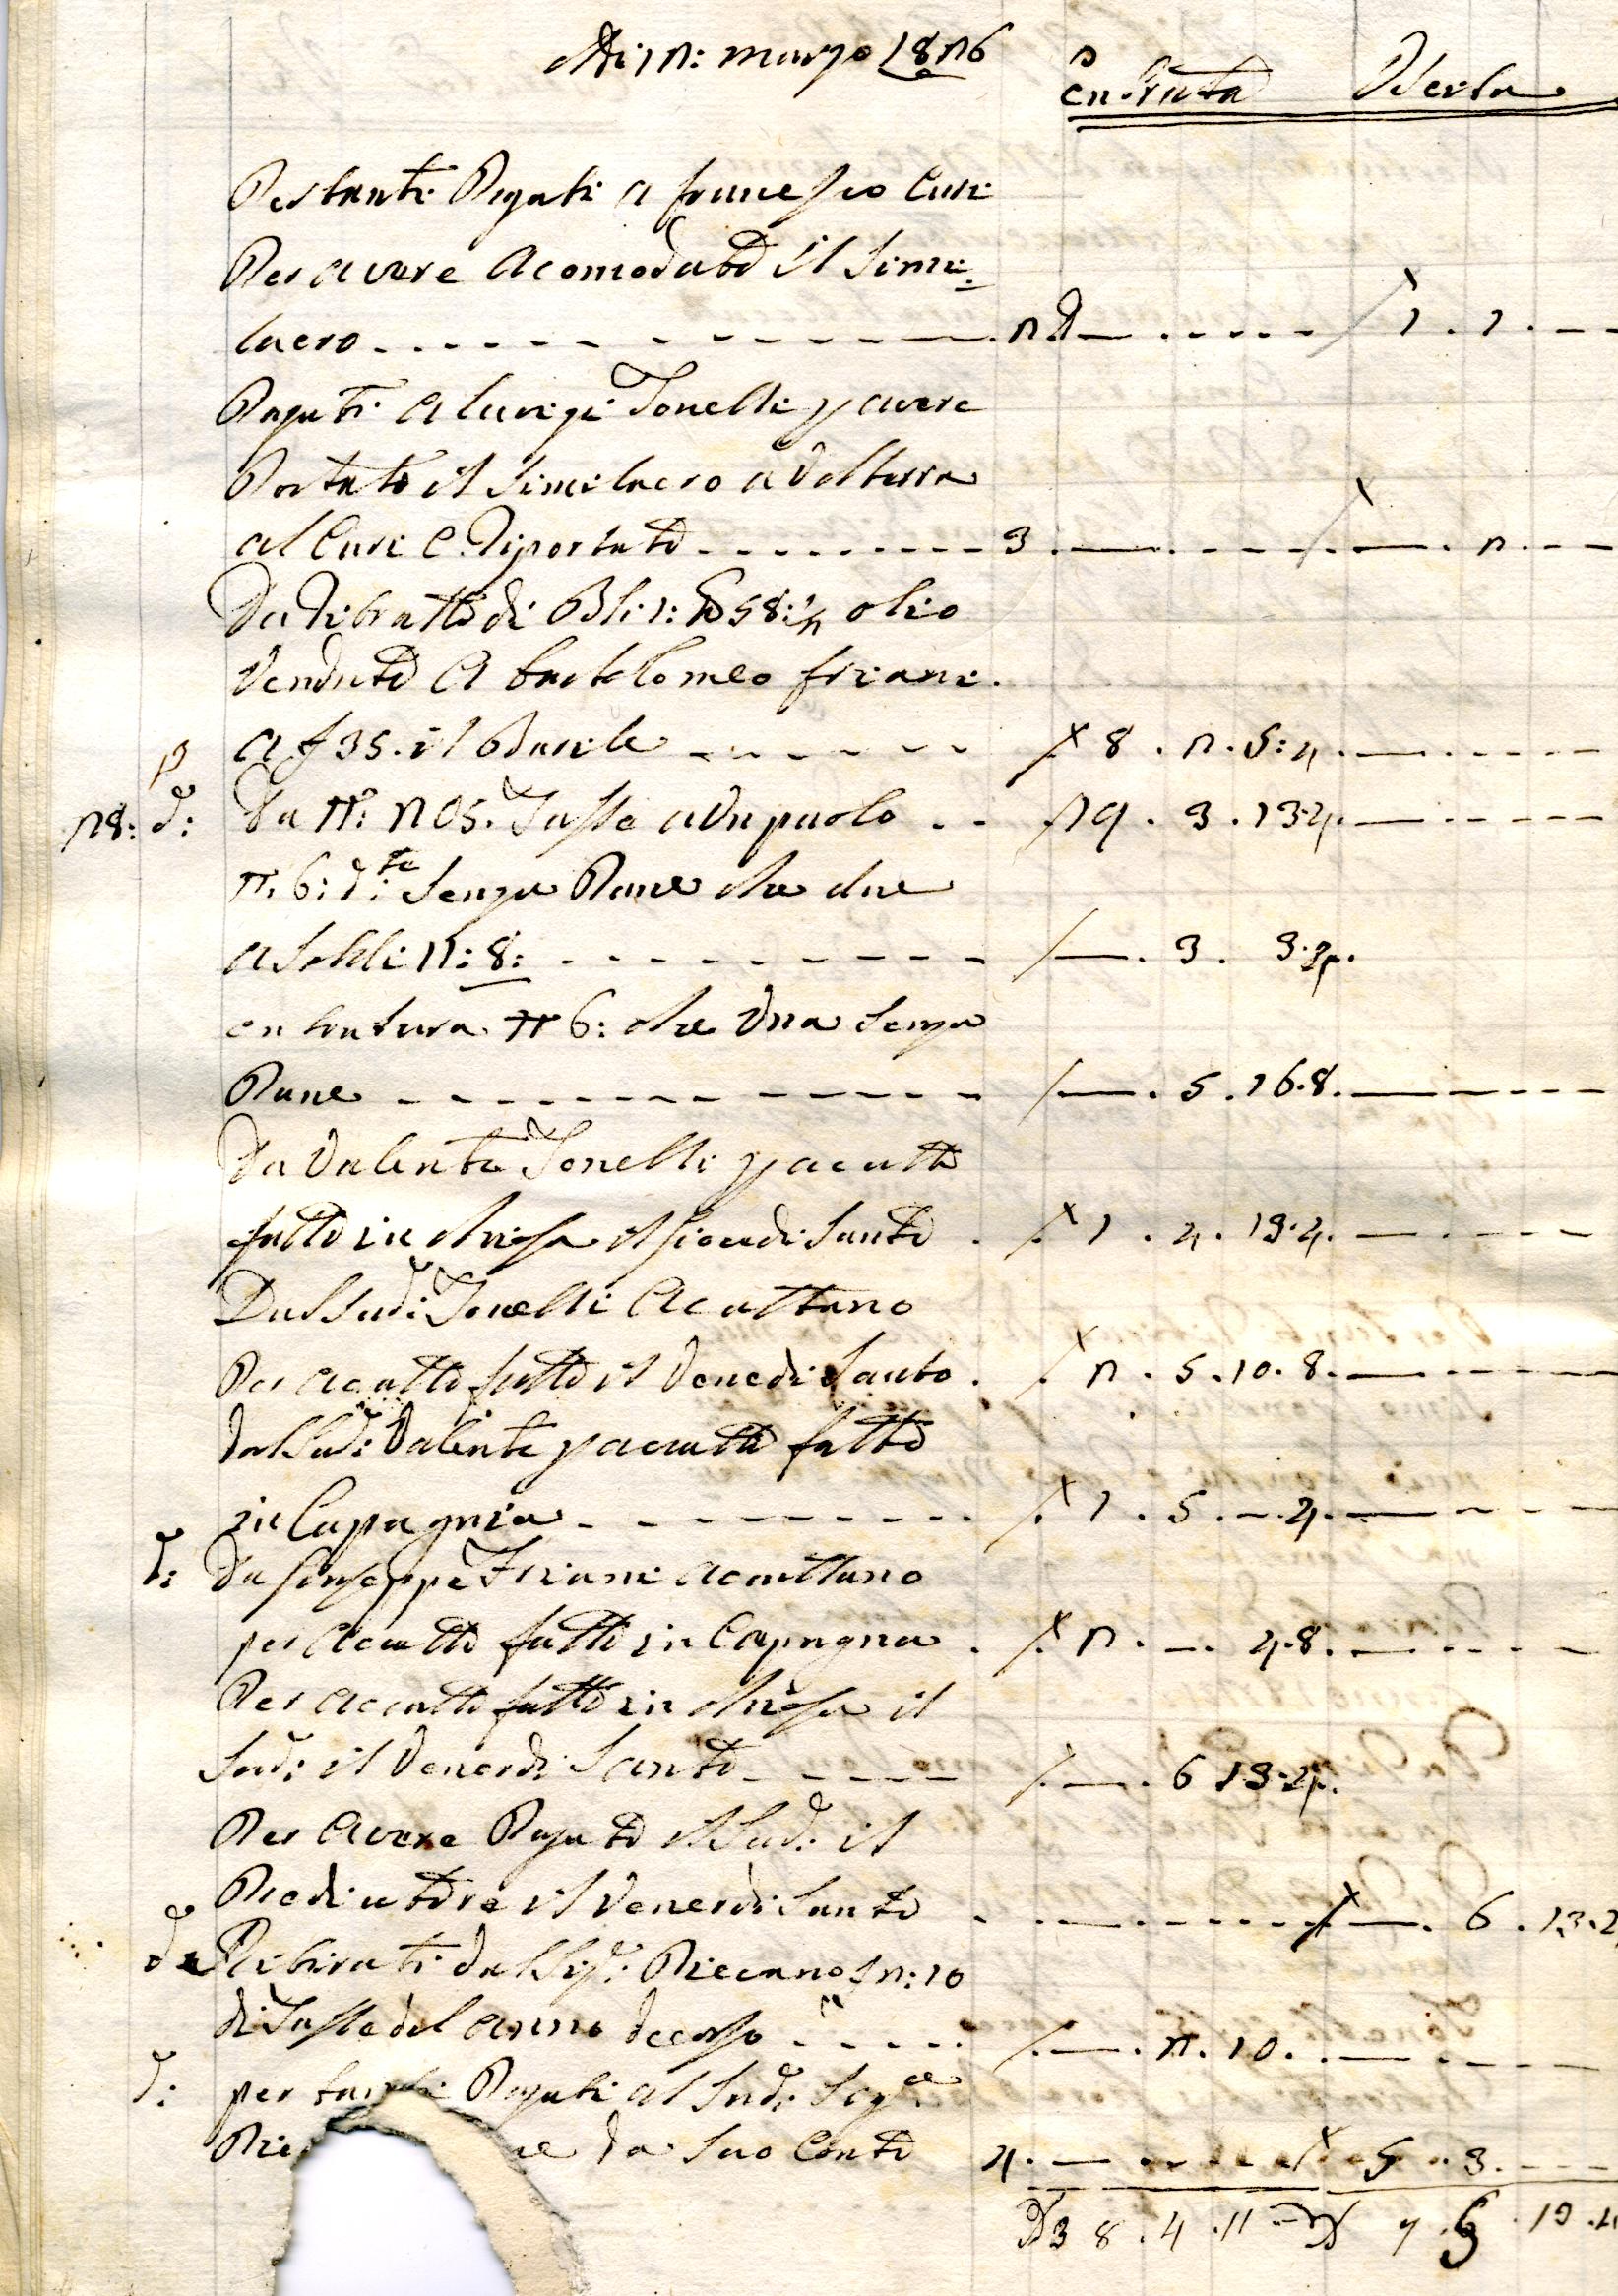 Adi 12: marzo 1826
entrata Uscita
Per tanti Pagati a francesco Curi
Per avere Acomodato il Simu=
lacro 2 1 . 1 .
Pagati a luigi Tonelli p avere
Portato il Similacro a Volterra
al Curi e Riportato 3 2
Da Ritratto di Bli 1: 58:½ olio
Venduto A bartolomeo friani.
a £ 35. il Barile 8 . 2 . 5 : 4
28: d: Da N: 205. Tasse a Un paolo 19 . 3 . 13.4
N. 6: d:te Senza Pane che due
a Soldi N: 8: 3 . 3.4
entratura N 6: che Una Senza
Pane 5 . 16.8
Da Valente Tonelli p acatto
fatto in chiesa il giovedi Santo 1 . 4 . 13.4
Dal Sud: Tonelli Acattano
Per acatto fatto il Venedi Santo 2 . 5 . 10 . 8
dal Sud: Valente p acatto fatto
in Capagnia 1 . 5 . — 4
d: Da Giuseppe Friani acattano
per acatto fatto in Capagna 2 . — 4.8
Per acatto fatto in chiesa il
Sud: il Venerdi Santo 6 13.4
Per avere Pagato il Sud: il
Prediatore il Venerdi Santo 6 . 13.4
de Ritirati dal Sig: Pievano £ 2: 10
di Tasse del anno decorso 2 . 10
d: per tanti Pagati al Sud: Sig:re
Pie da Suo Conto 4 5 . 3
38 . 4 . 11 — 7 . 6 . 19 . 4